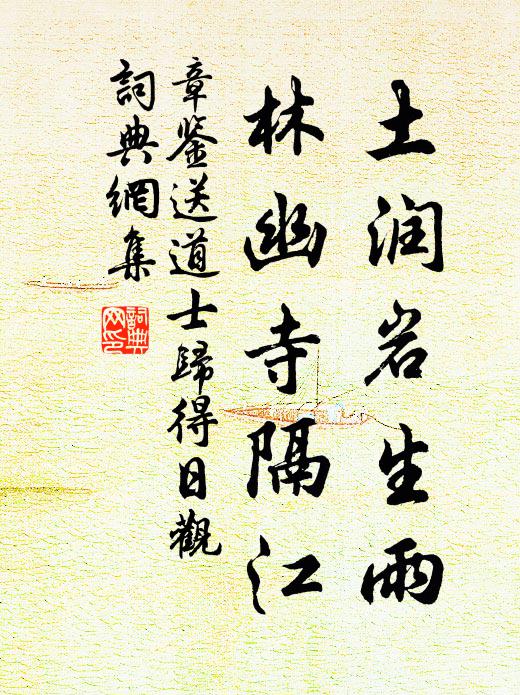 土润岩生雨
林幽寺隔江
章鉴送道士歸得日觀
詞典網集
詞典网印